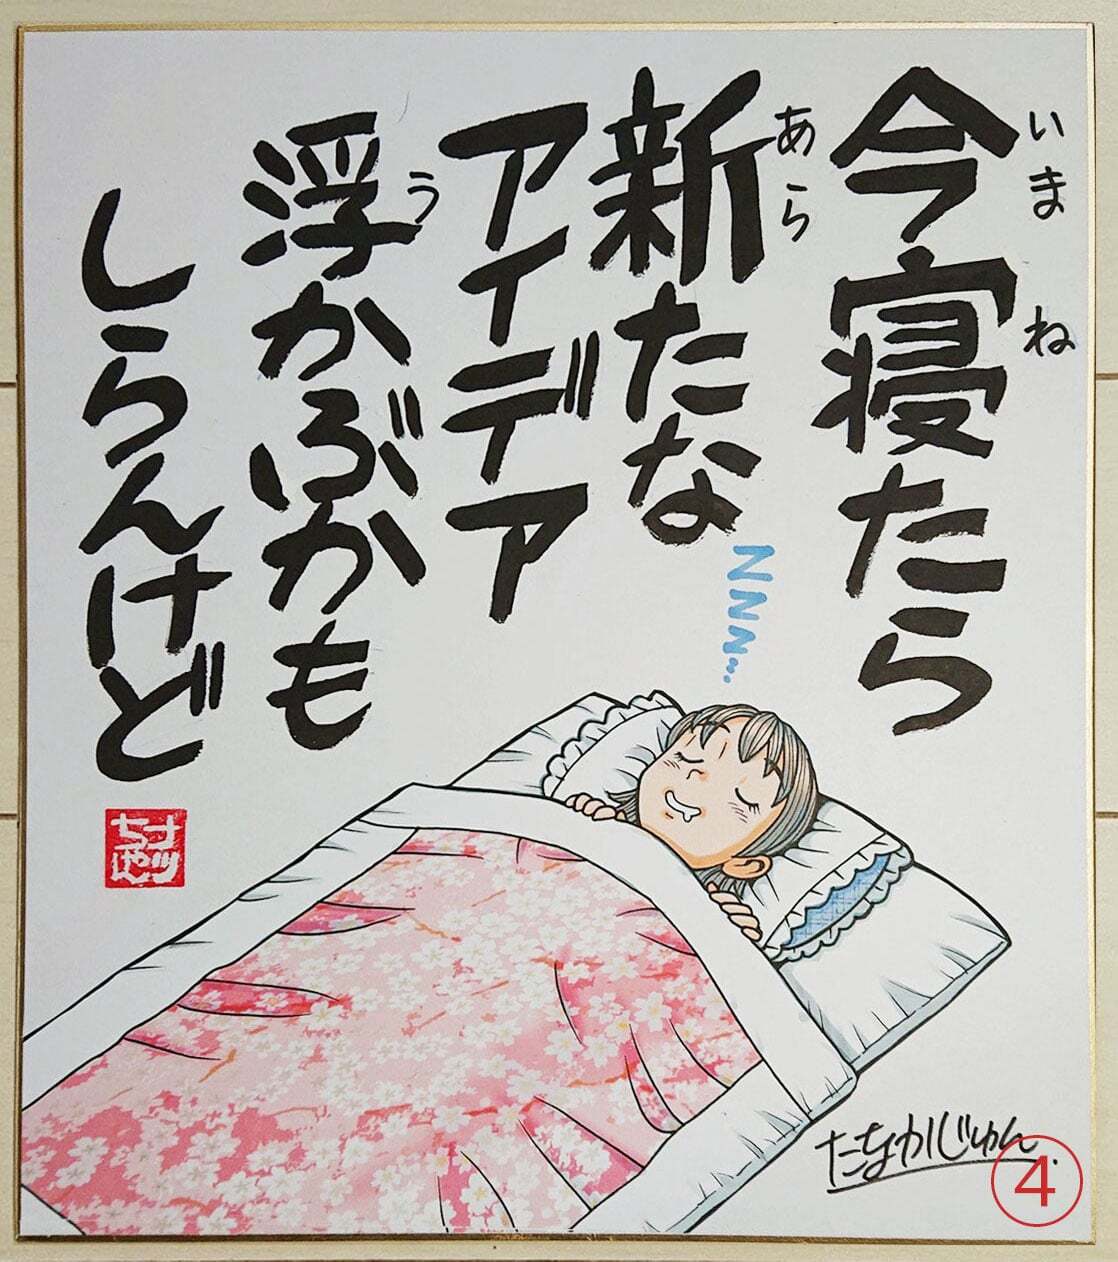 今寝たら
いま ね
新たな
あら
アイデア
浮かぶかも
う
しらんけど
ZZZ...
たなかじゅん
④